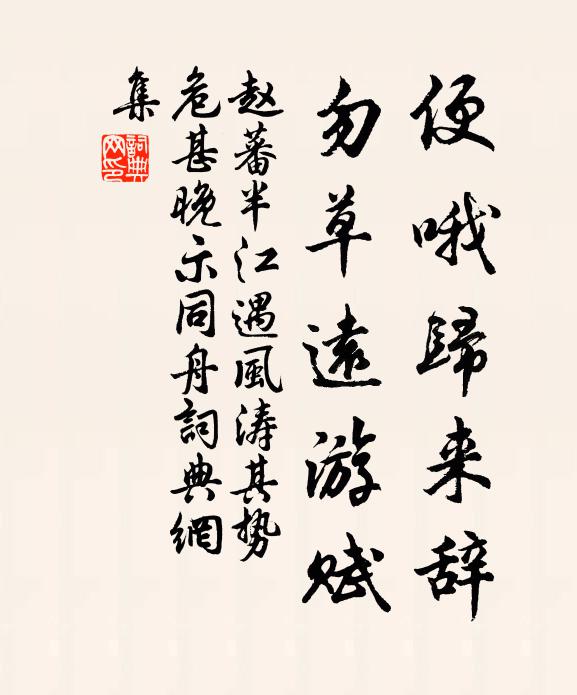 便哦歸来辞
勿草遠游赋
赵蕃半江遇風涛其势
危甚晚示同舟詞典網
集
詞典網印